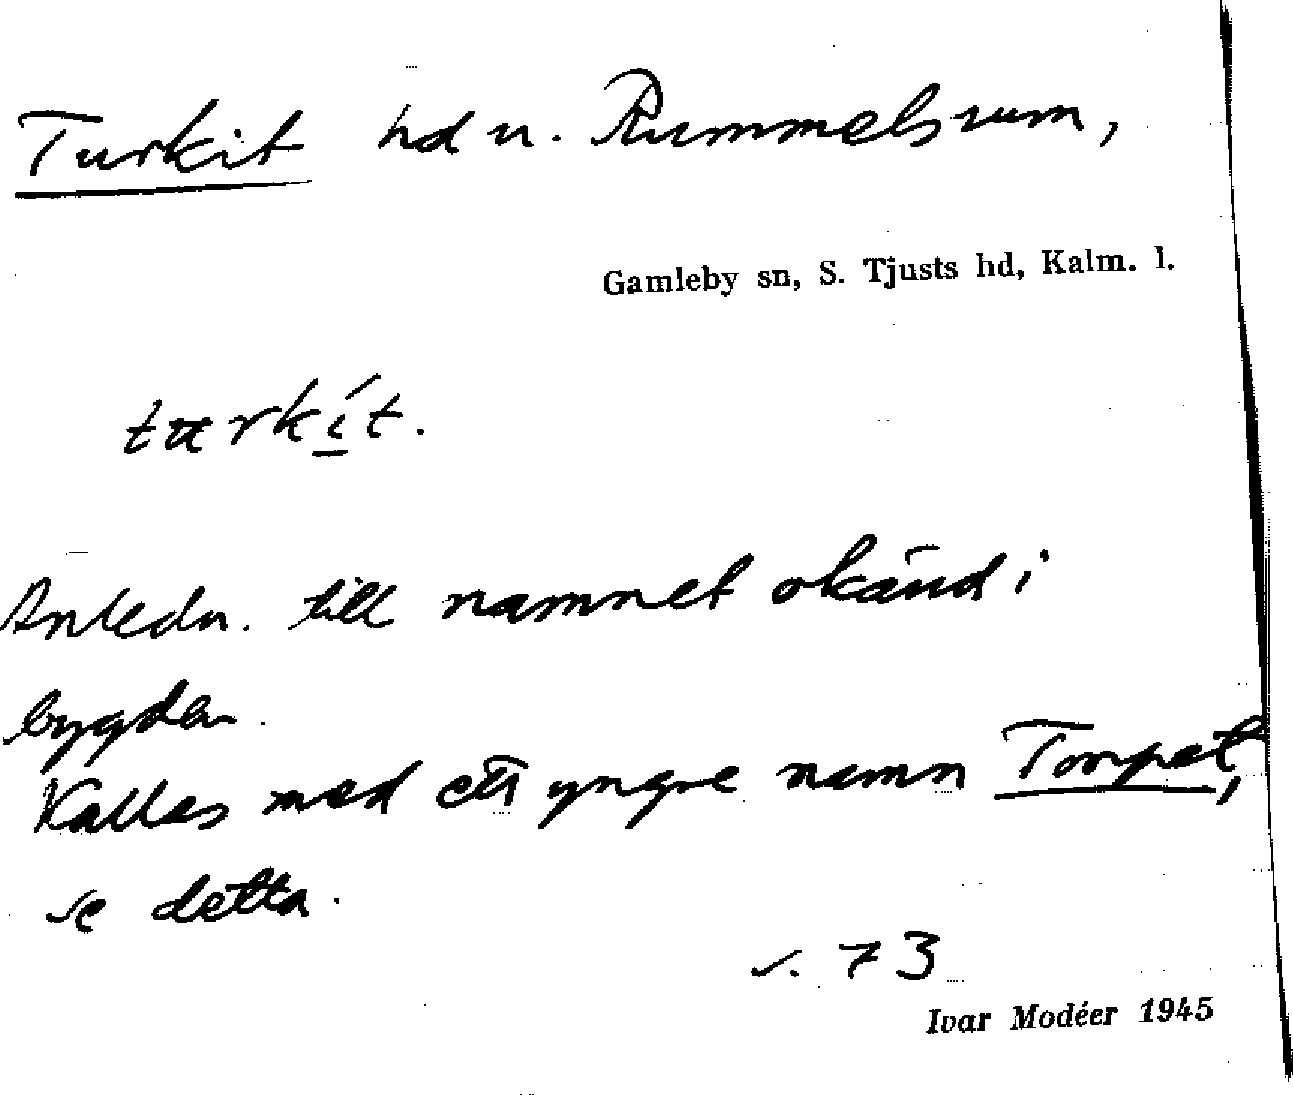 Turkit hd u. Rummelsrum,
Gamleby sn, S. Tjusts hd, Kalm. l.
turkít.
Anledn. till namnet okänd i
bygden.
Kallas med ett yngre namn Torpet,
se detta.
s. 73
Ivar Modéer 1945